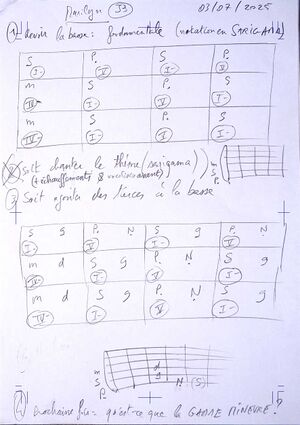 Marilyn 39 03/07/2025
① devoir la basse : fondamentale (notation en SARIGAMA)
S P. S P.
I- V I- V
m S P. S
IV- I- V I-
m S P. S
IV- I- V I-
② Soit chanter le thème (sarigama)
(+ échauffements &
③ Soit ajouter des tierces à la basse
S g P. N S g P. N
I- V I- V
m d S g P. N S g
IV- I- V I-
m d S g P. N S g
IV- I- V I-
m
S
P.
d
g
N (S)
④ prochaine fois = qu'est-ce que la GAMME MINEURE ?